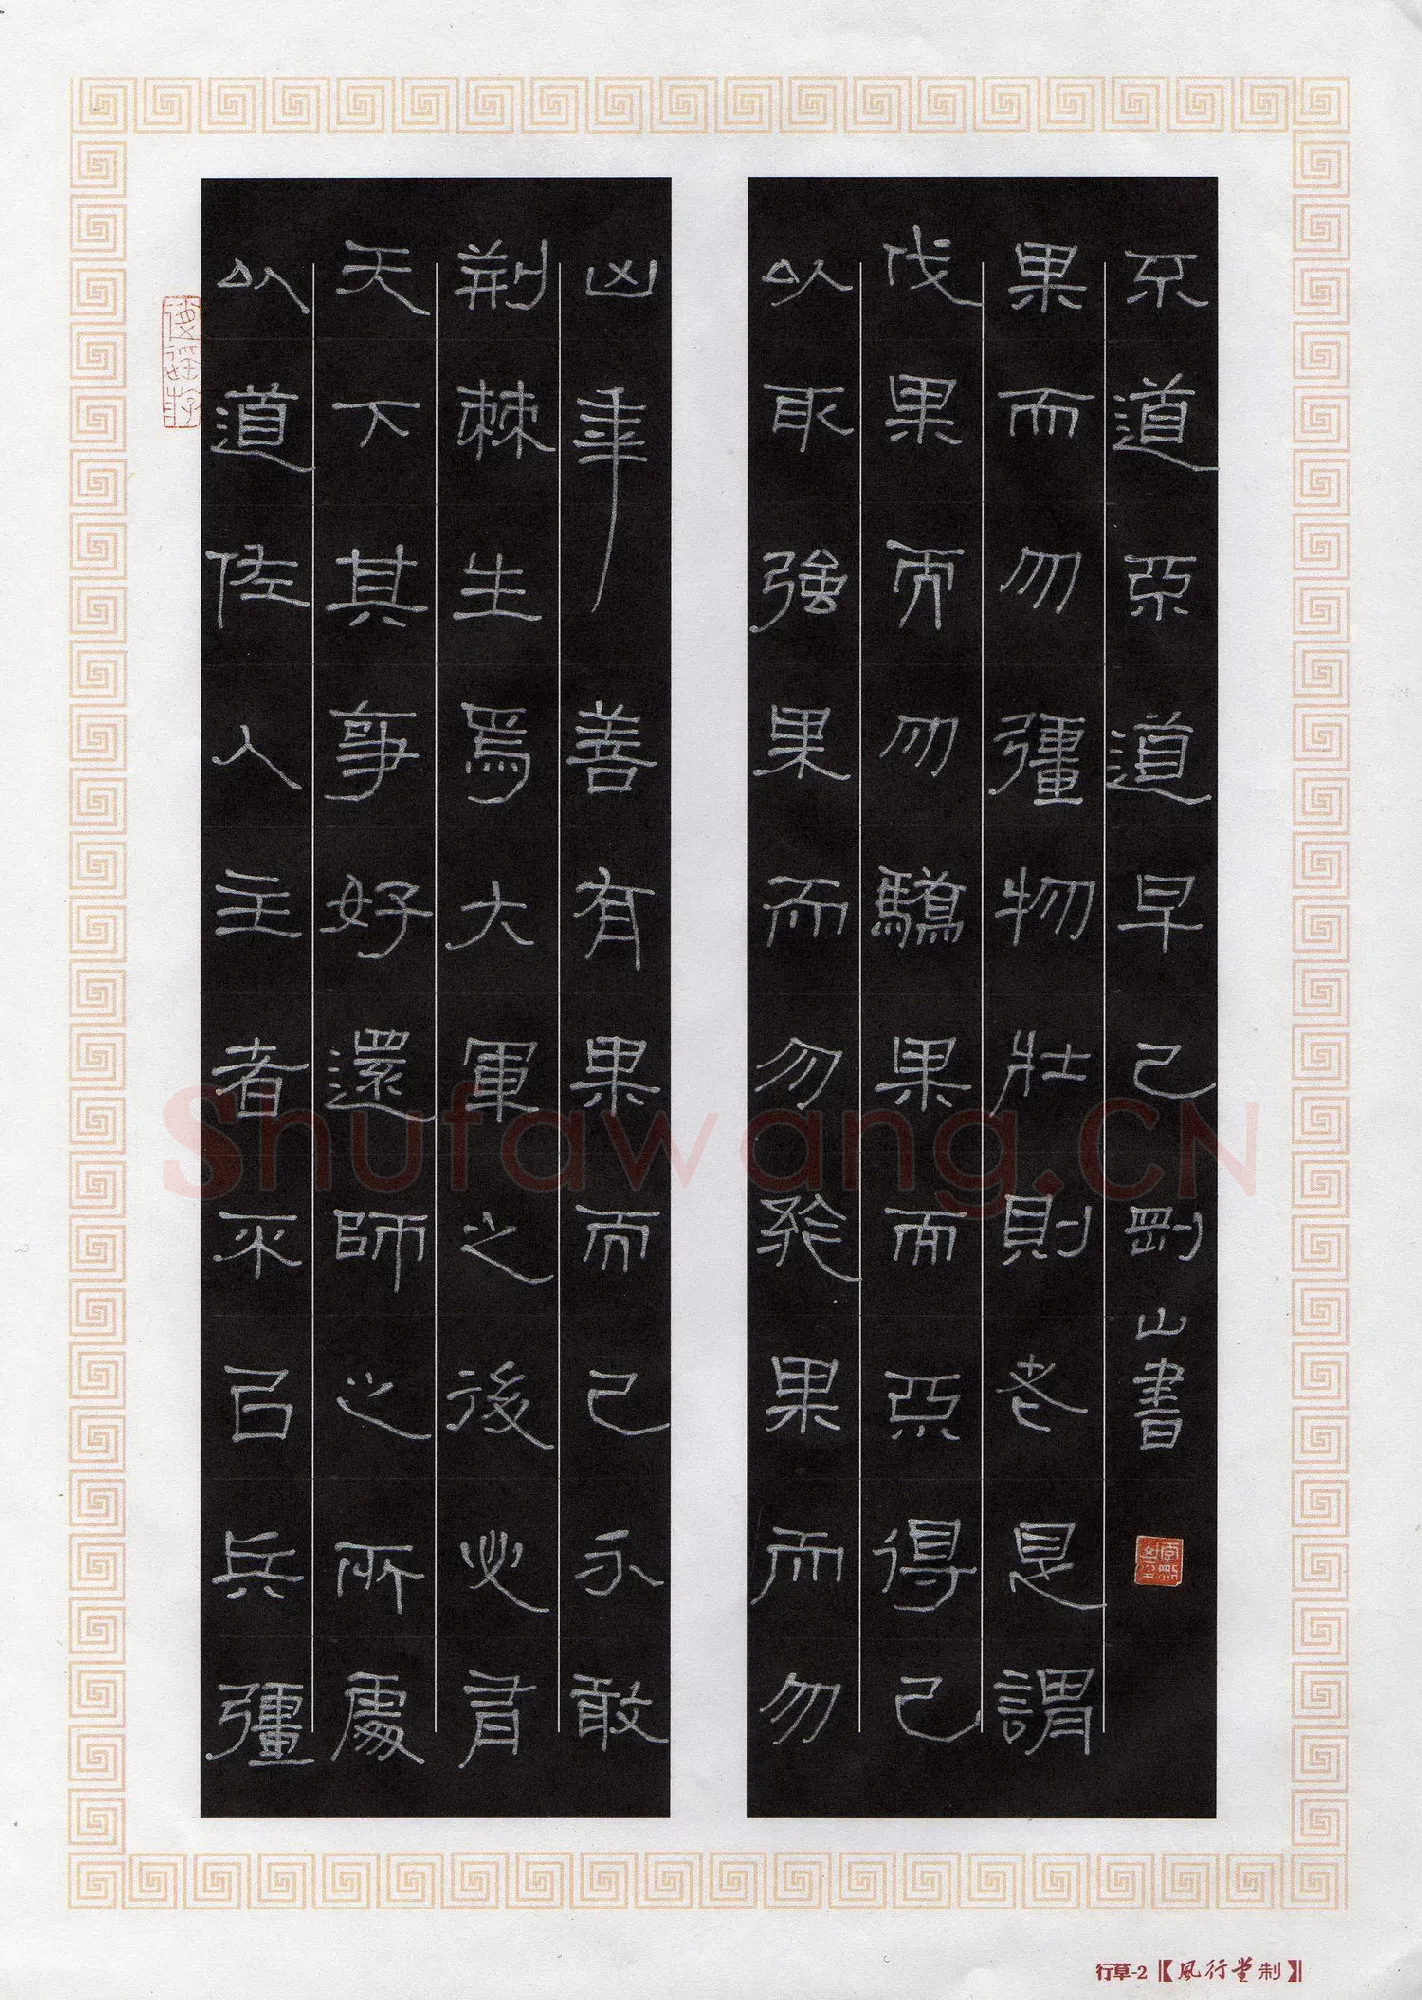 以道佐人主者不㠯兵彊
天下其事好還師之所處
荊棘生焉大軍之後必有
凶年善有果而已不敢
以取強果而勿矜果而勿
伐果而勿驕果而不得已
果而勿彊物壯則老是謂
不道不道早已 剛山書
Shufawang.CN
行草-2【風行堂制】